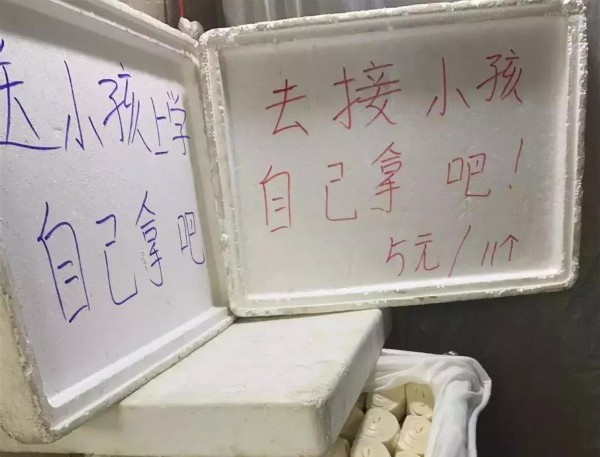 送小孩上学
自己拿吧
去接小孩
自己拿吧！
5元/1个